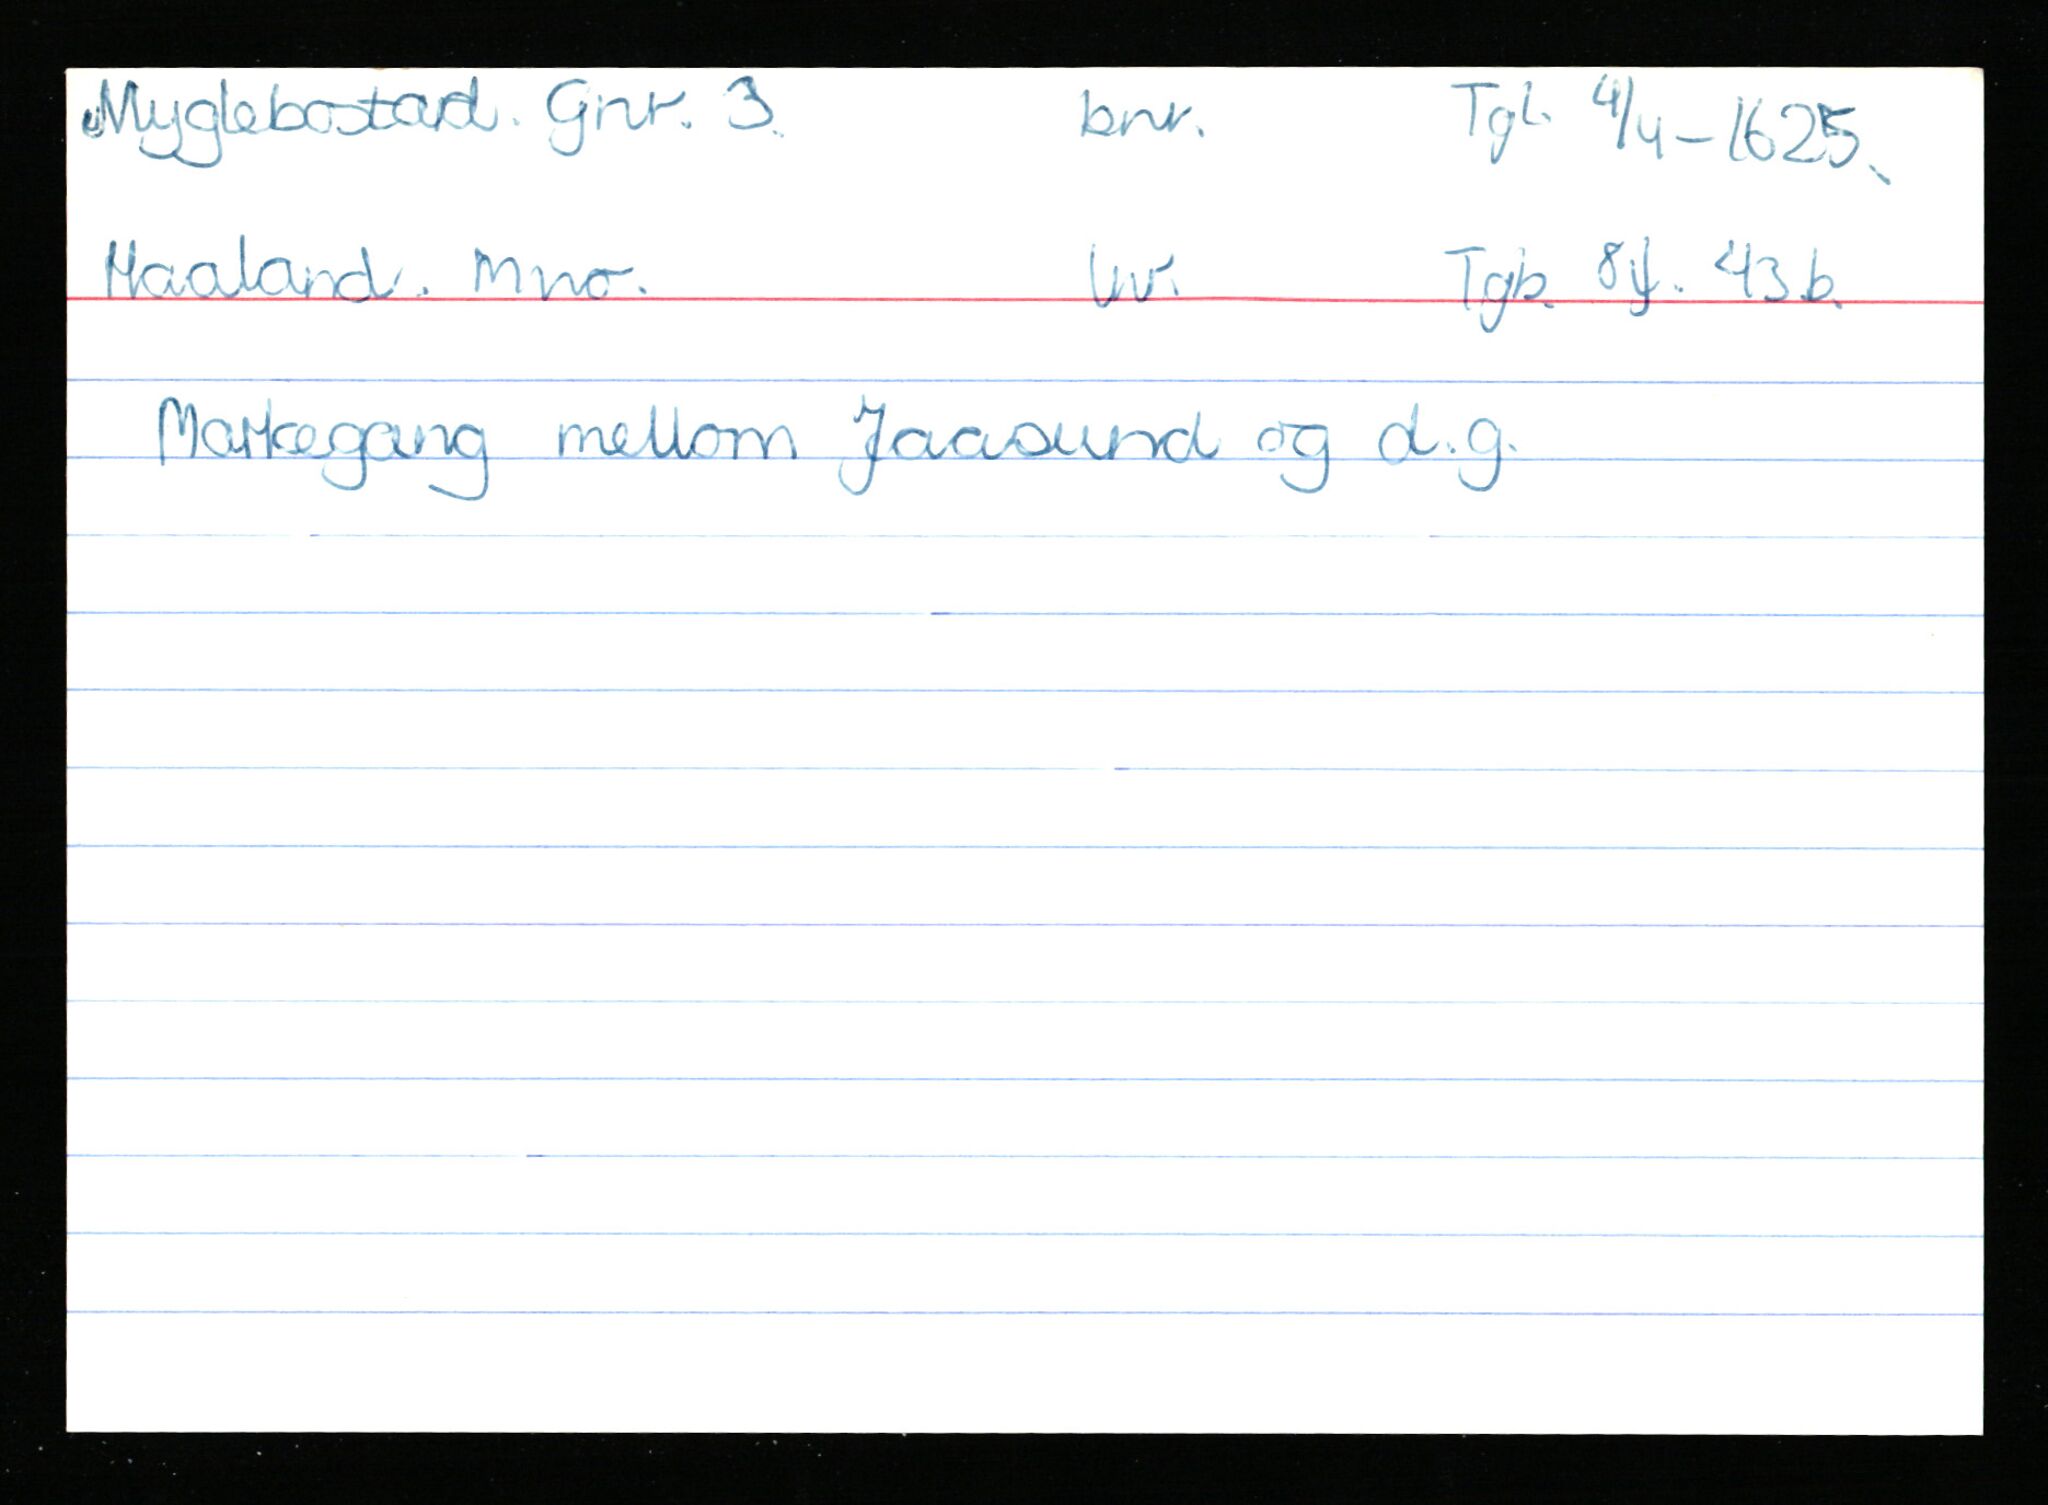 Myglebostad. Gnr. 3. bnr. Tgl. 4/4-1625.
Haaland. mno. lnr. Tgb. 8 f. 43 b.
Markegang mellom Jaasund og d.g.